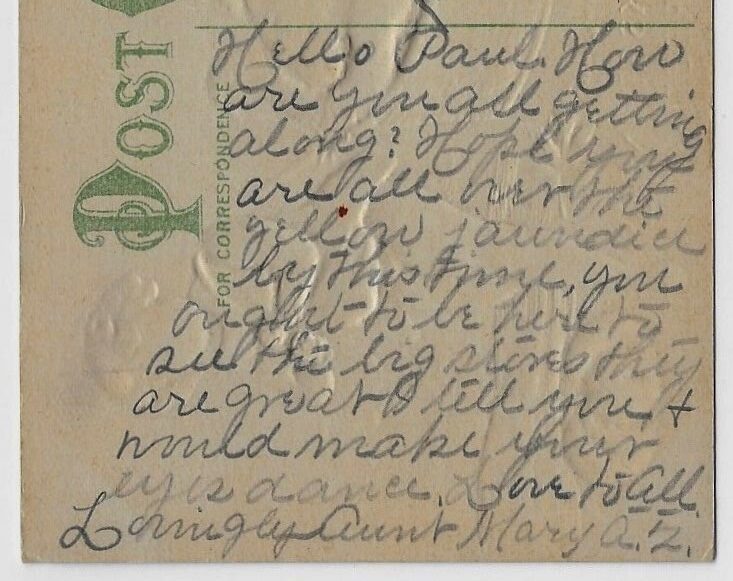 POST
FOR CORRESPONDENCE
Hello Paul. How
are you all getting
along? Hope you
are all over the
yellow jaundice
by this time, you
ought to be here to
see the big stores they
are great I tell you, +
would make your
eyes dance. Love to all.
Lovingly Aunt Mary A. Z.